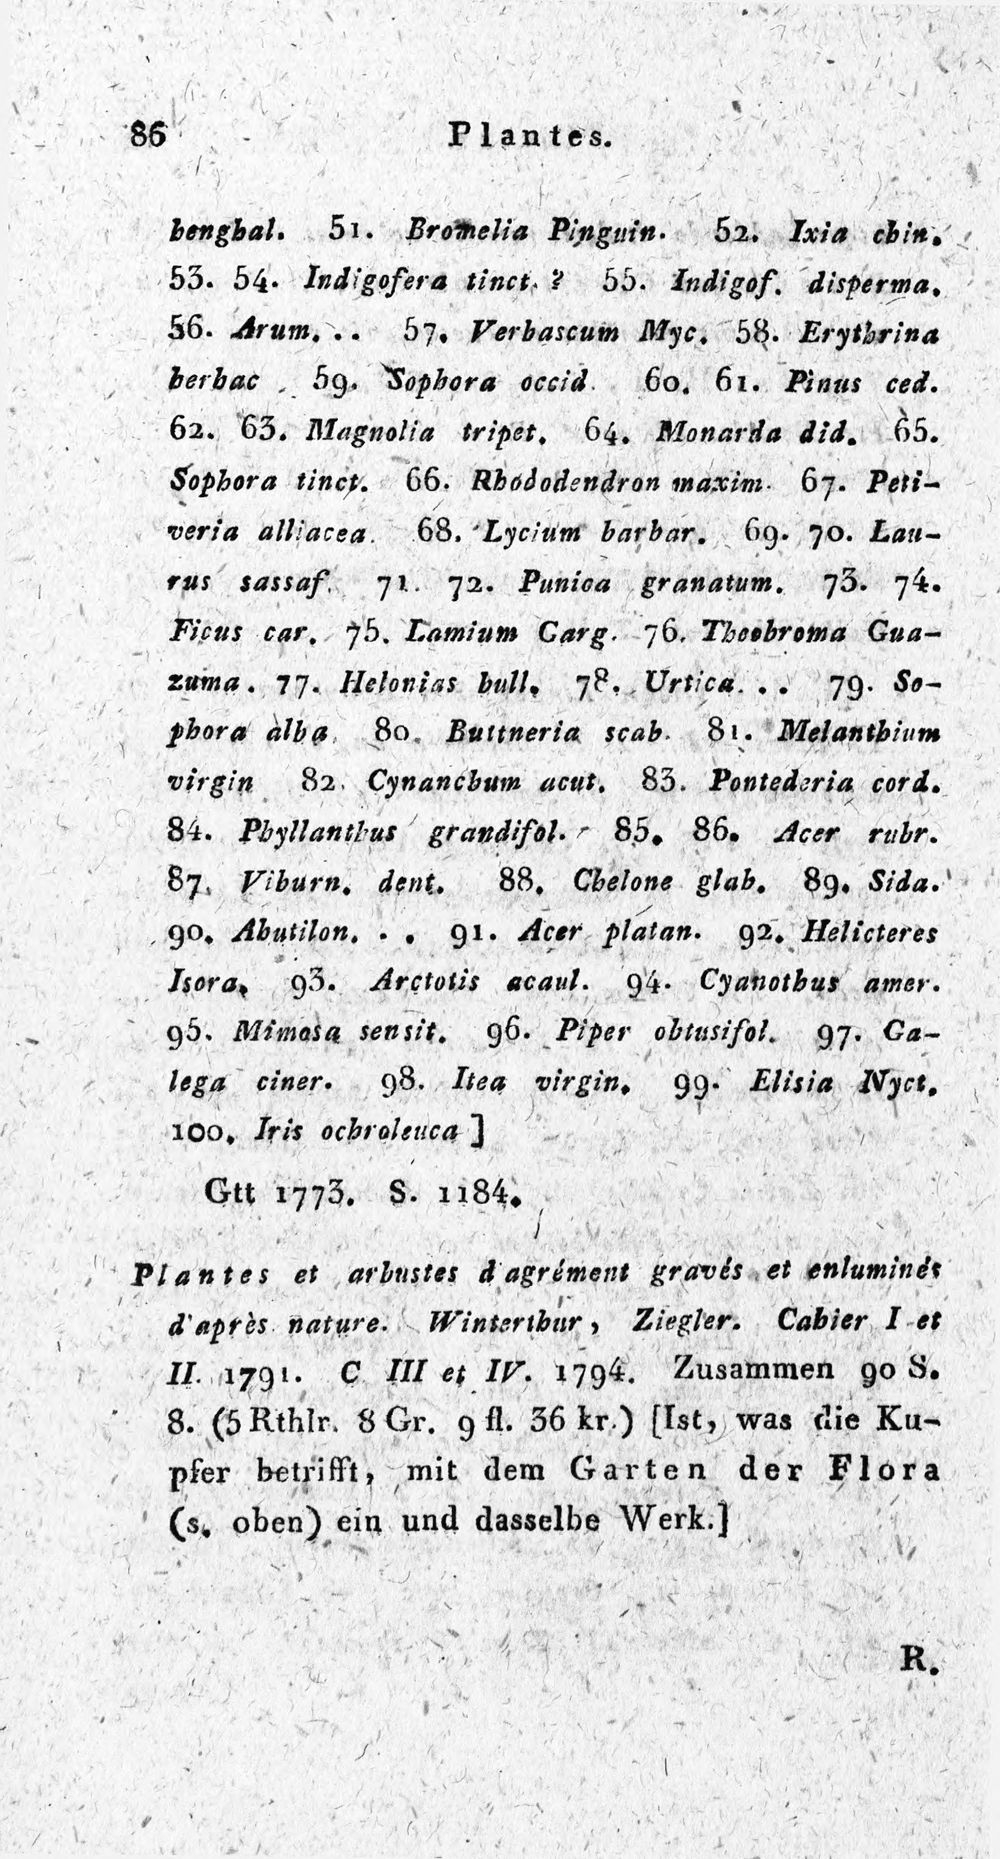 86 Plantes.
benghal. 51. Bromelia Pinguin. 52. Ixia chin.
53. 54. Indigofera tinct. ? 55. Indigof. disperma.
56. Arum. . . 57. Verbascum Myc. 58. Erythrina
herbac. 59. Sophora occid. 60. 61. Pinus ced.
62. 63. Magnolia tripet. 64. Monarda did. 65.
Sophora tinct. 66. Rhododendron maxim. 67. Peti-
veria alliacea. 68. Lycium barbar. 69. 70. Lau-
rus sassaf. 71. 72. Punica granatum. 73. 74.
Ficus car. 75. Lamium Garg. 76. Theobroma Gua-
zuma. 77. Helonias bull. 78. Urtica. . . 79. So-
phora alba. 80. Buttneria scab. 81. Melanthium
virgin. 82. Cynanchum acut. 83. Pontederia cord.
84. Phyllanthus grandifol. 85. 86. Acer rubr.
87. Viburn. dent. 88. Chelone glab. 89. Sida.
90. Abutilon. . . 91. Acer platan. 92. Helicteres
Isora. 93. Arctotis acaul. 94. Cyanothus amer.
95. Mimosa sensit. 96. Piper obtusifol. 97. Ga-
lega ciner. 98. Itea virgin. 99. Elisia Nyct.
100. Iris ochroleuca ]
Gtt 1773. S. 1184.
Plantes et arbustes d'agrément gravés et enluminés
d'après nature. Winterthur, Ziegler. Cahier I et
II. 1791. C III et IV. 1794. Zusammen 90 S.
8. (5 Rthlr. 8 Gr. 9 fl. 36 kr.) [Ist, was die Ku-
pfer betrifft, mit dem Garten der Flora
(s. oben) ein und dasselbe Werk.]
R.